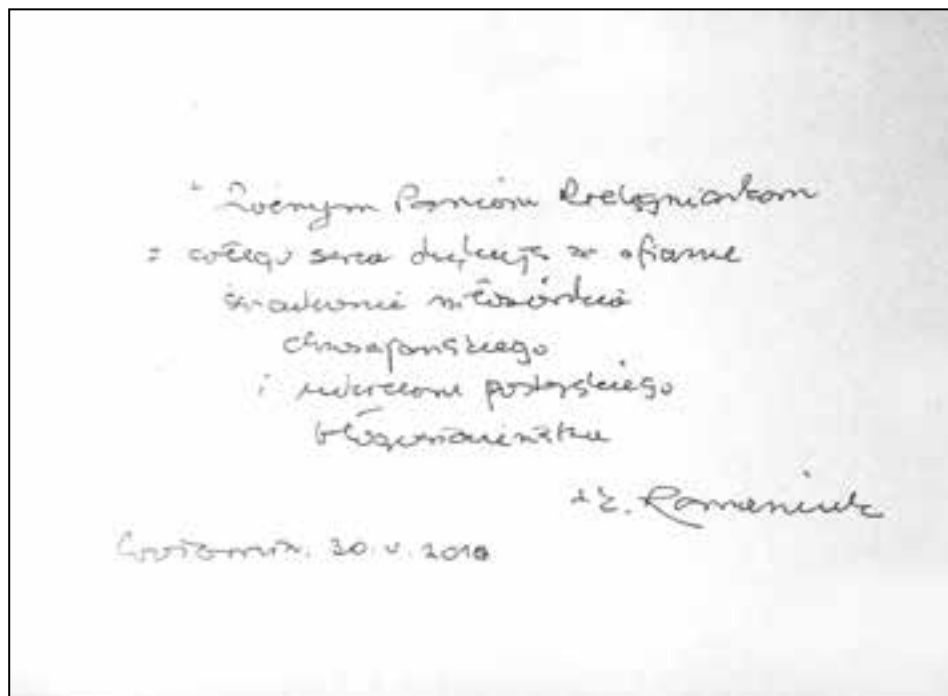 Paniom Pielęgniarkom
z całego serca dziękuję za ofiarne
świadczenie miłosierdzia
chrześcijańskiego
i udzielam pasterskiego
błogosławieństwa
Romaniuk
30.V.2010